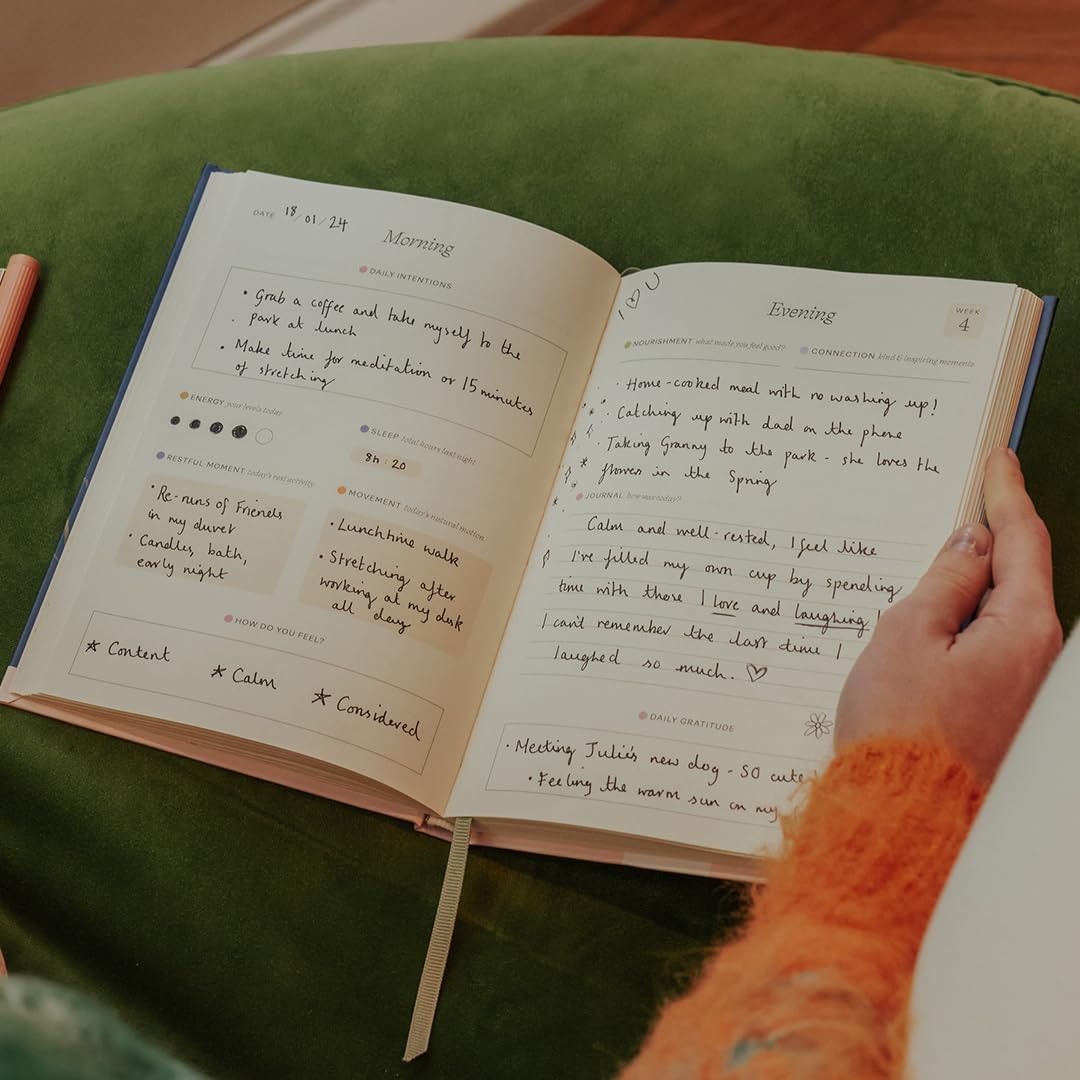 DATE 18/01/24
Morning
DAILY INTENTIONS
• Grab a coffee and take myself to the
park at lunch
• Make time for meditation or 15 minutes
of stretching
ENERGY your levels today
SLEEP total hours last night
8h : 20
RESTFUL MOMENT today's rest activity
• Re-runs of Friends
in my duvet
• Candles, bath,
early night
MOVEMENT today's natural motion
• Lunchtime walk
• Stretching after
working at my desk
all day
HOW DO YOU FEEL?
Content
Calm
Considered
I ♡ U
Evening
WEEK
4
NOURISHMENT what made you feel good?
CONNECTION kind & inspiring moments
• Home-cooked meal with no washing up!
• Catching up with dad on the phone
• Taking Granny to the park - she loves the
flowers in the Spring
JOURNAL how was today?
Calm and well-rested, I feel like
I've filled my own cup by spending
time with those I love and laughing!
I can't remember the last time I
laughed so much. ♡
DAILY GRATITUDE
• Meeting Julie's new dog - SO cute
• Feeling the warm sun on my